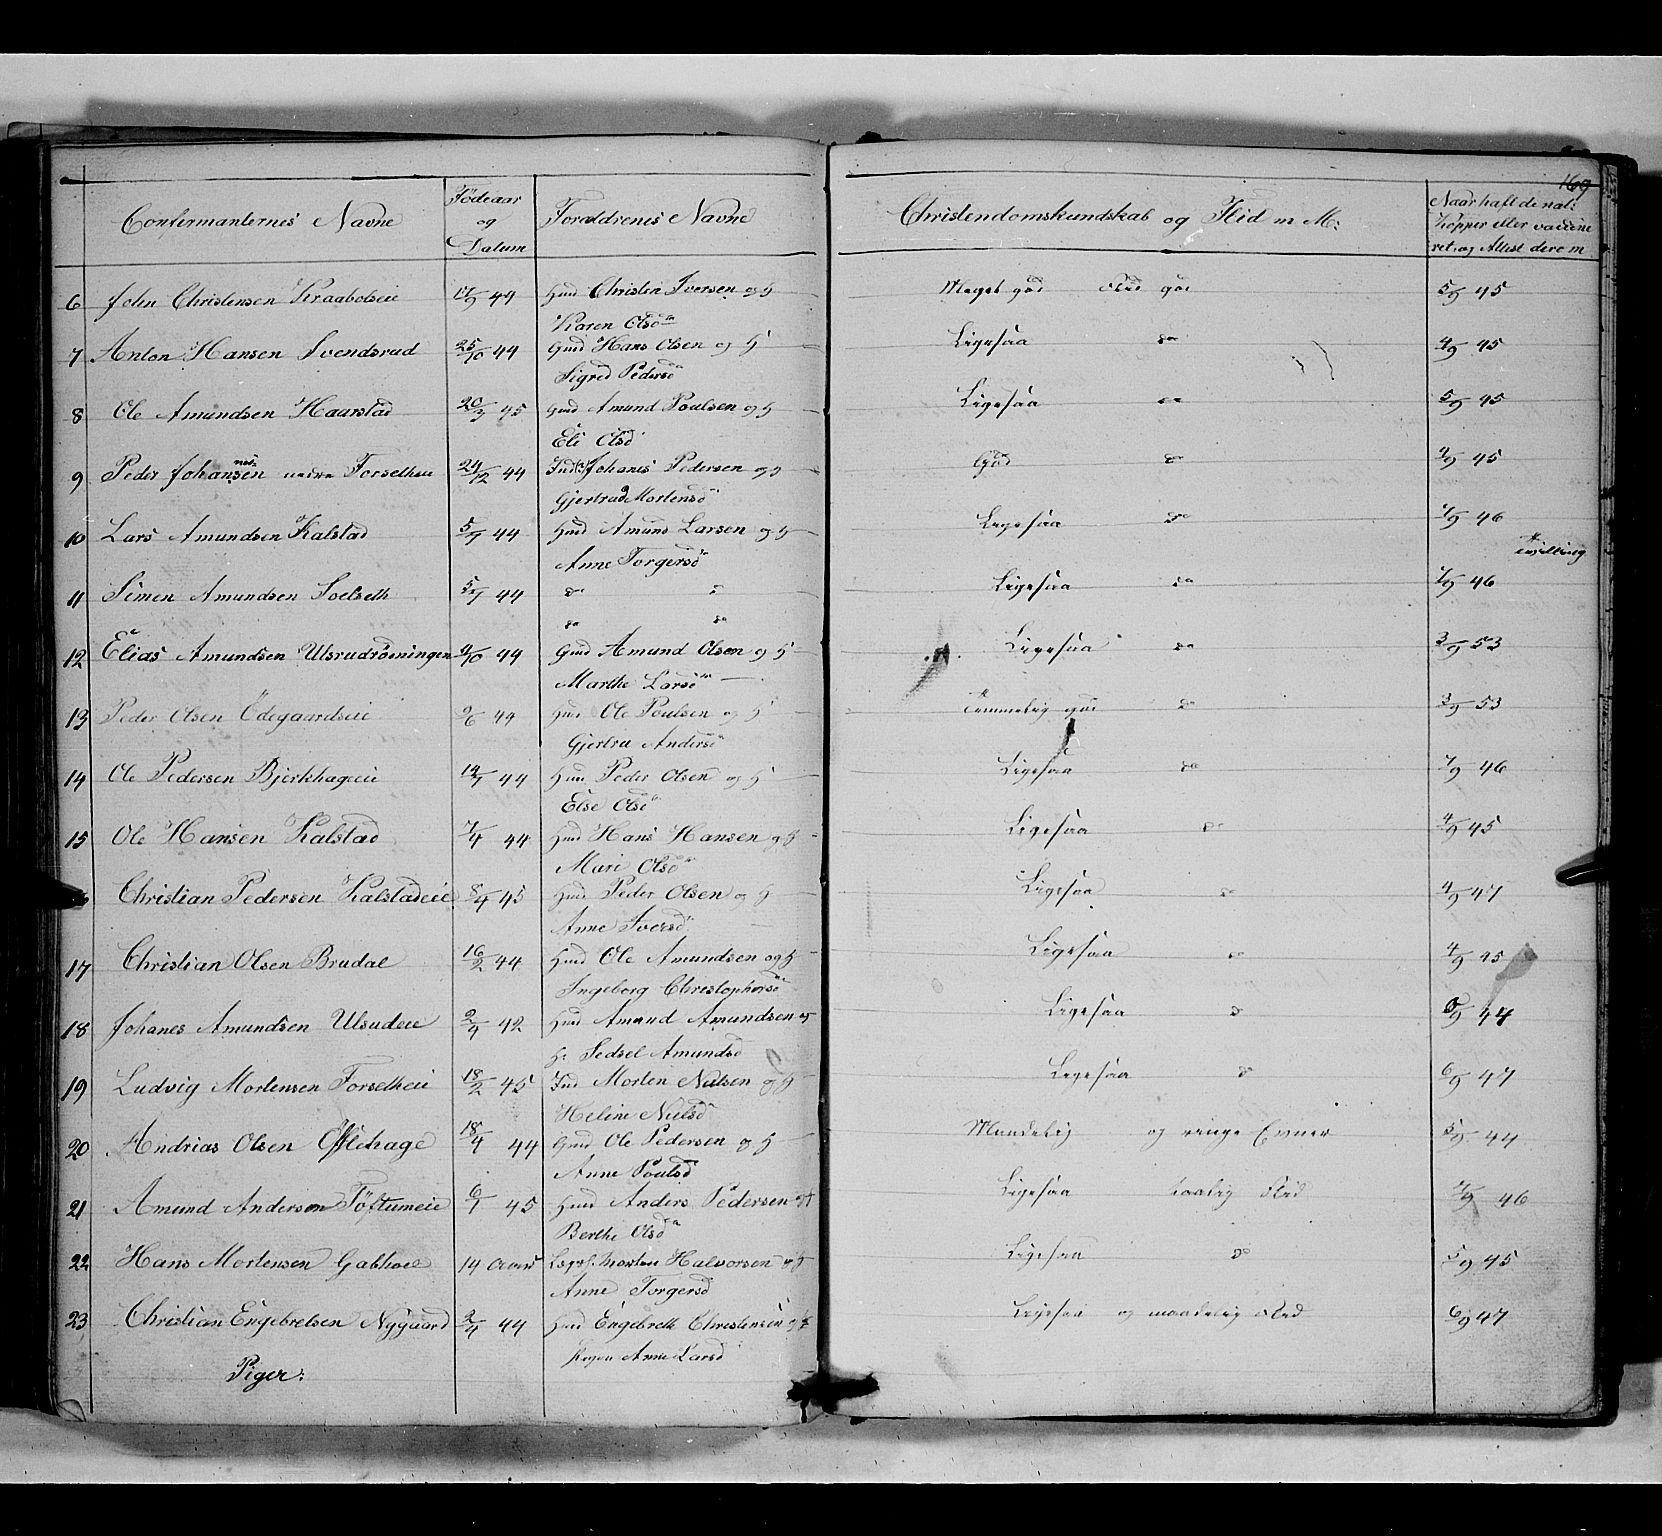 169
Confirmanternes Navne
Fødeaar
og
Datum
Forældrenes Navne
Christendomskundskab og Flid m M:
Naar haft de nat:
Kopper eller vaccine
ret og Attest derom
6 John Christensen Kraabolseie 44 Huud Christen Iversen og H Meget god Flid god 5/9 45
Karen Olsd
7 Anton Hansen Svendsrud 25/10 44 Gmd Hans Olsen og H Ligesaa do 4/9 45
Sigrid Pedersd
8 Ole Amundsen Haarstad 20/3 45 Gmd Amund Poulsen og H Ligesaa do 5/9 45
Eli Olsd
9 Peder Johansen nedre Forsetheie 24/12 44 Johanes Pedersen og H God do 4/9 45
Gjertrud Mortensd
10 Lars Amundsen Kalstad 5/7 44 Huud Amund Larsen og H Ligesaa do 7/9 46
Anne Torgersd
Tvilling
11 Simen Amundsen Soelseth 5/7 44 do Ligesaa do 7/9 46
do do
12 Elias Amundsen Ulsrudrøeningen 4/10 44 Gmd Amund Olsen og H Ligesaa do 3/9 53
Marthe Larsd
13 Peder Olsen Ødegaardseie 44 Huud Ole Poulsen og H Temmelig god do 3/9 53
Gjertru Andersd
14 Ole Pedersen Bjerkhageeie 14/7 44 Huud Peder Olsen og H Ligesaa do 7/9 46
Else Olsd
15 Ole Hansen Kalstad 7/4 44 Huud Hans Hansen og H Ligesaa do 4/9 45
Mari Olsd
Christian Pedersen Kalstadeie 8/4 45 Huud Peder Olsen og H Ligesaa do 4/9 47
Anne Iversd
17 Christian Olsen Brudal 16/2 44 Huud Ole Amundsen og H Ligesaa do 4/9 45
Ingeborg Christophersd
18 Johanes Amundsen Ulsudeie 42 Huud Amund Amundsen og Ligesaa do 44
H: Sedsel Amundsd
19 Ludvig Mortensen Forsetheie 18/2 45 Ind Morten Nielsen og H Ligesaa do 6/9 47
Heline Nielsd
20 Andrias Olsen Øflehage 18/4 44 Gmd Ole Pedersen og H Maadelig og ringe Evner 5/9 44
Anne Poulsd
21 Amund Andersen Tøftumeie 6/1 45 Huud Anders Pedersen og H Ligesaa taalig Flid 7/9 46
Berthe Olsd
22 Hans Mortensen Gabhoel 14 Aar Morten Halvorsen og H Ligesaa do 5/9 45
Anne Torgersd
23 Christian Engebretsen Nygaard 2/4 44 Huud Engebreth Christensen og H Ligesaa og maadelig Flid 6/9 47
Anne Larsd
Piger: